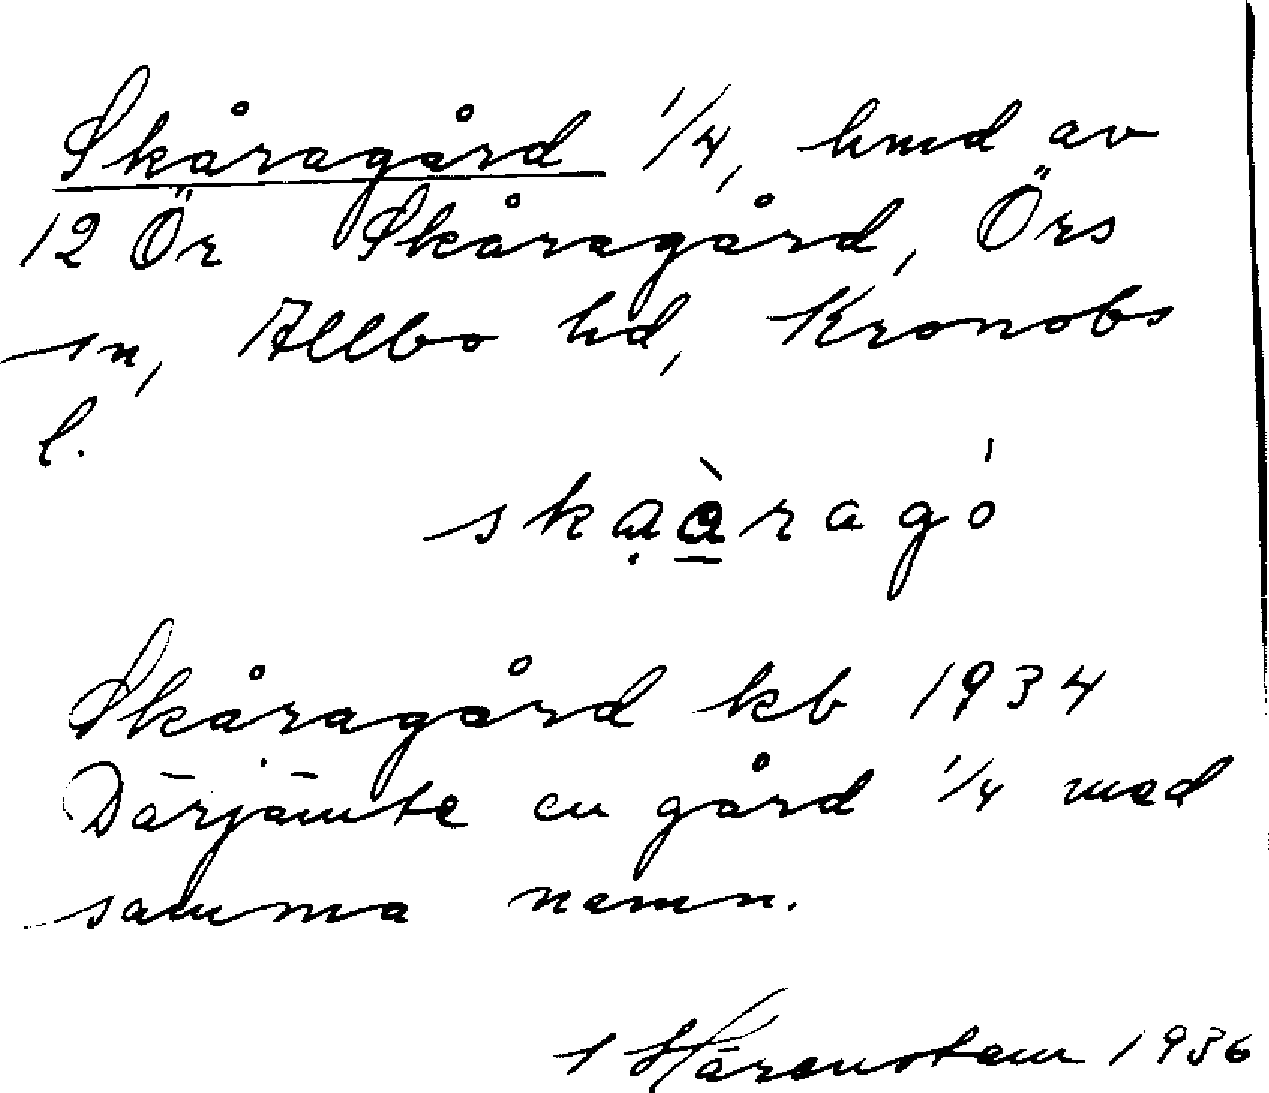 Skåragård 1/4, hmd av
12 Ör Skåragård, Örs
sn, Allbo hd, Kronobs
l.
skạà̱ragó
Skåragård kb 1934
Därjämte en gård 1/4 med
samma namn.
Härenstam 1936